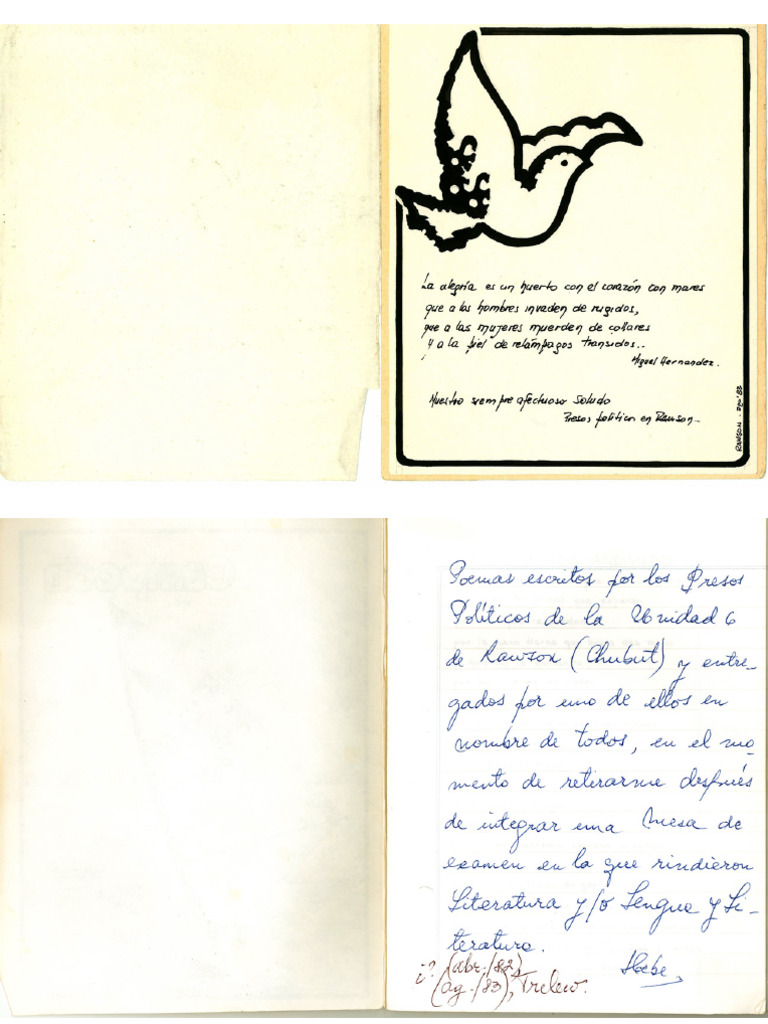 La alegría es un huerto con el corazón con mares
que a los hombres invaden de rugidos,
que a las mujeres muerden de collares
y a la piel de relámpagos transidos..
Miguel Hernandez.
Nuestro siempre afectuoso Saludo
Presos políticos en Rawson_
RAWSON - '83
Poemas escritos por los Presos
Políticos de la Unidad 6
de Rawson (Chubut) y entre-
gados por uno de ellos en
nombre de todos, en el mo-
mento de retirarme después
de integrar una Mesa de
examen en la que rindieron
Literatura y/o Lengua y Li-
teratura.
Hebe
¿? (abr./82),
(ag./83), Trelew.